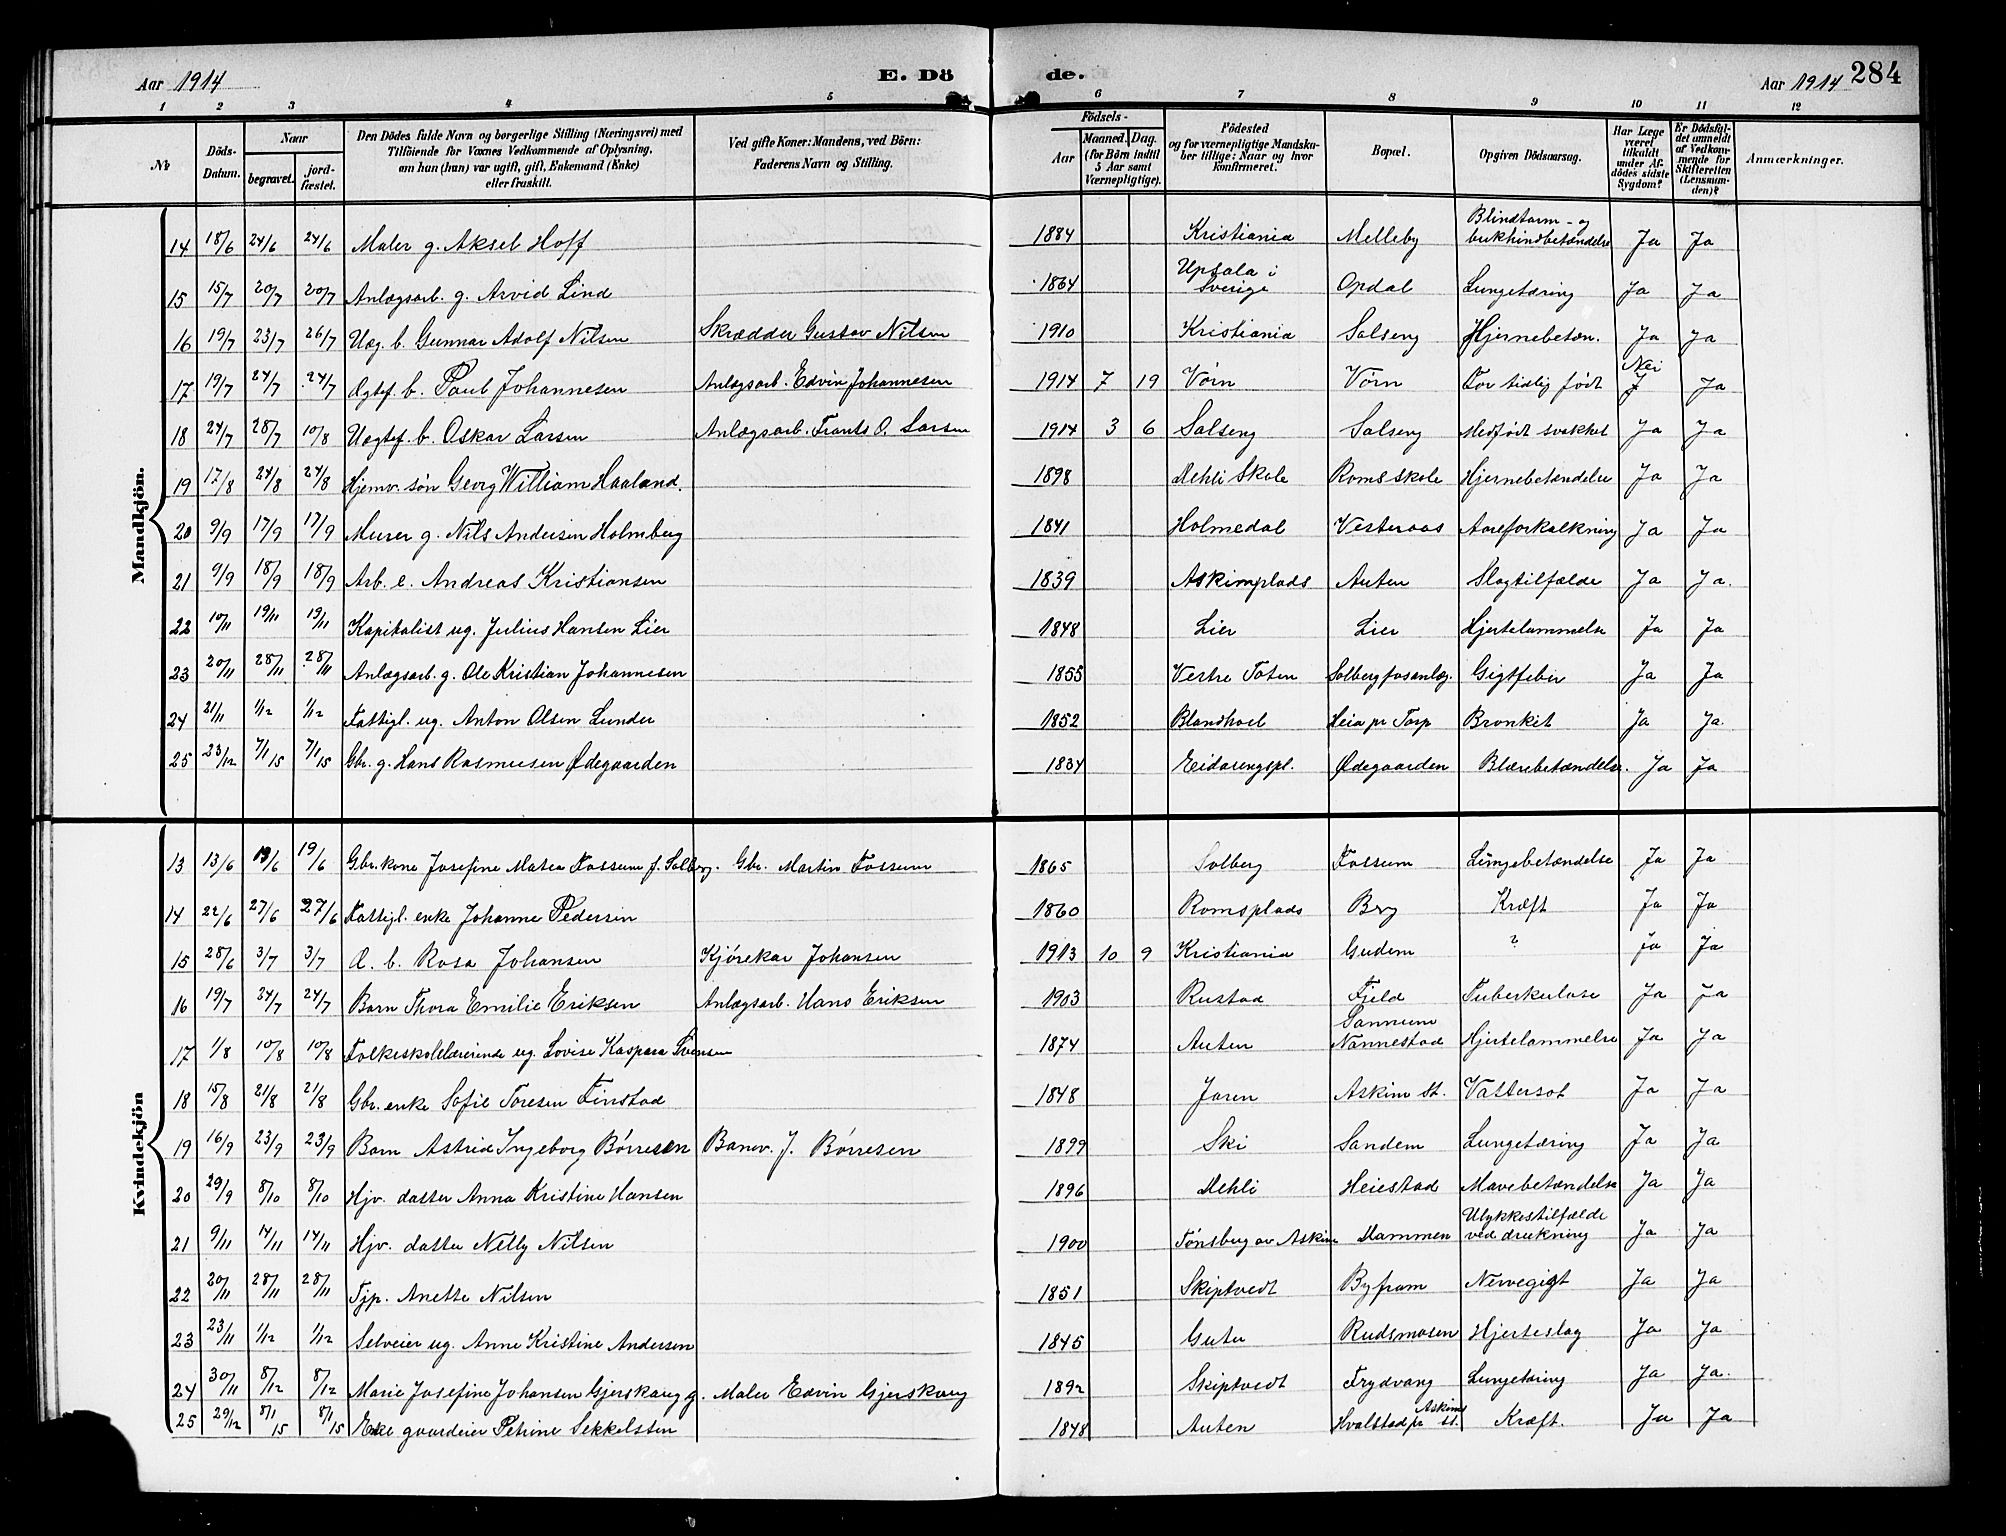 Aar 1914 E. Dö de. Aar 1914 284
1 2 3 4 5 6 7 8 9 10 11 12
№ Döds-Datum. Naar begravet. jord-fæstet. Den Dödes fulde Navn og borgerlige Stilling (Næringsvei) med Tilföiende for Voxnes Vedkommende af Oplysning, om han (hun) var ugift, gift, Enkemand (Enke) eller fraskilt. Ved gifte Koner: Mandens, ved Börn: Faderens Navn og Stilling. Födsels- Aar Maaned. Dag. (for Börn indtil 5 Aar samt Værnepligtige). Födested og for værnepligtige Mandska-ber tillige: Naar og hvor Konfirmeret. Bopæl. Opgiven Dödsaarsag. Har Læge været tilkaldt under Af-dödes sidste Sygdom? Er Dödsfal-det anmeldt af Vedkom-mende for Skifteretten (Lensman-den)? Anmærkninger.
Mandkjön.
14 18/6 24/6 24/6 Maler g. Aksel Hoff 1884 Kristiania Melleby Blindtarm- og bukhindbetændelse Ja Ja
15 15/7 20/7 20/7 Anlægsarb. g. Arvid Lind 1864 Upsala i Sverige Opdal Lungetæring Ja Ja
16 19/7 23/7 26/7 Uæg. b. Gunnar Adolf Nilsen Skrædder Gustav Nilsen 1910 Kristiania Solseng Hjernebetæn. Ja Ja
17 19/7 24/7 24/7 Ægtef. b. Paul Johannesen Anlægsarb. Edvin Johannesen 1914 7 19 Vørn Vørn For tidlig født Nei Ja
18 24/7 28/7 10/8 Uægtef. b. Oskar Larsen Anlægsarb. Frants O. Larsen 1914 3 6 Solseng Solseng Medfødt svakhet Ja Ja
19 17/8 24/8 24/8 Hjemv. søn Georg William Haaland. 1898 Mehli Skole Romsskole Hjernebetændelse Ja Ja
20 9/9 17/9 17/9 Murer g. Nils Andersen Holmberg 1841 Holmedal Vesteraas Aareforkalkning Ja Ja
21 9/9 18/9 18/9 Arb. e. Andreas Kristiansen 1839 Askimplads Auten Slagtilfælde Ja Ja.
22 10/11 19/11 19/11 Kapitalist ug. Julius Hansen Lier 1848 Lier Lier Hjertelammelse Ja Ja
23 20/11 28/11 28/11 Anlægsarb. g. Ole Kristian Johannesen 1855 Vestre Toten Solbergfosanlæg. Gigtfeber Ja Ja
24 21/11 1/12 1/12 Fattigl. ug. Anton Olsen Lunder 1852 Blandhoel Heia pr Torp Bronkit Ja Ja.
25 23/12 7/1 15 7/1 15 Gbr. g. Hans Rasmussen Ødegaarden 1834 Eidarengspl. Ødegaarden Blærebetændelse. Ja Ja
Kvindekjön
13 13/6 19/6 19/6 Gbr. kone Josefine Matea Fossum f. Solberg. Gbr. Martin Fossum 1865 Solberg Fossum Lungebetændelse Ja Ja
14 22/6 27/6 27/6 Fattigl. enke Johanne Pedersen 1860 Romsplads Berg Kræft Ja Ja
15 28/6 3/7 3/7 Æ. b. Rosa Johansen Kjørekar Johansen 1913 10 9 Kristiania Gudem ? Ja Ja
16 19/7 24/7 24/7 Barn Thora Emilie Eriksen Anlægsarb. Hans Eriksen 1903 Rustad Fjeld Tuberkulose Ja Ja
17 1/8 10/8 10/8 Folkeskolelærerinde ug. Lovise Kaspara Svensen 1874 Auten Sannum Nannestad Hjertelammelse Ja Ja
18 15/8 21/8 21/8 Gbr. enke Sofie Toresen Finstad 1848 Joren Askim st. Vattersot Ja Ja
19 16/9 23/9 23/9 Barn Astrid Ingeborg Børresen Banev. J. Børresen 1899 Ski Sandem Lungetæring Ja Ja
20 29/9 8/10 8/10 Hjv. datter Anna Kristine Hansen 1896 Mehli Heiestad Mavebetændelse Ja Ja
21 9/11 14/11 14/11 Hjv. datter Nelly Nilsen 1900 Tønsberg av Askim Mammen Ulykkestilfælde ved drukning Ja Ja
22 20/11 28/11 28/11 Tjp. Anette Nilsen 1851 Skiptvedt Byfram Nervegigt Ja Ja
23 23/11 1/12 1/12 Selveier ug. Anne Kristine Andersen 1845 Guter Rudsmosen Hjerteslag Ja Ja
24 30/11 8/12 8/12 Marie Josefine Johansen Gjerskaug g. Maler Edvin Gjerskaug 1892 Skiptvedt Frydvang Lungetæring Ja Ja.
25 29/12 8/1 15 8/1 15 Enke gaardeier Petrine Sekkelsten 1848 Auten Hvalstad pr Askim st. Kræft. Ja Ja